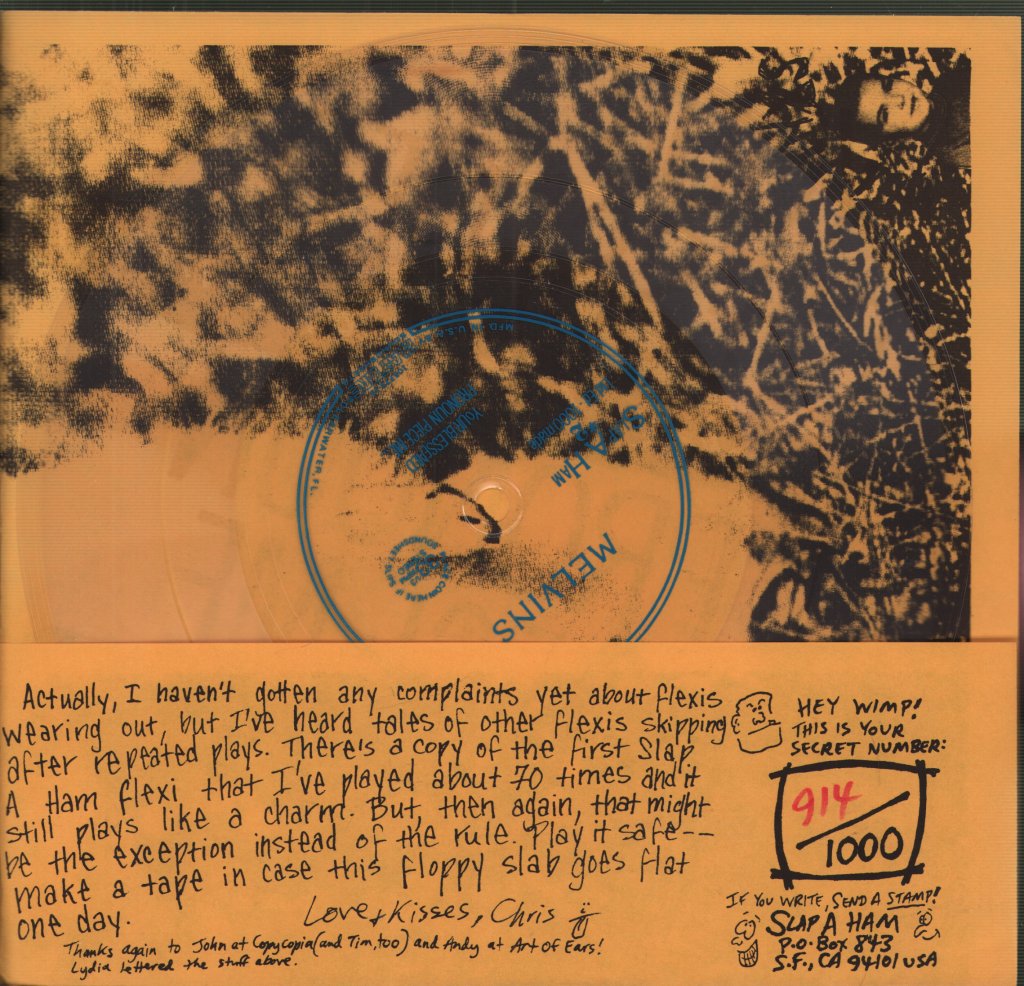 MFD. U.S.
CLEARWATER, FL.
SLAP A HAM
#2
33 1/3 RPM
MELVINS
Actually, I haven't gotten any complaints yet about flexis
wearing out, but I've heard tales of other flexis skipping
after repeated plays. There's a copy of the first Slap
A Ham flexi that I've played about 70 times and it
still plays like a charm. But, then again, that might
be the exception instead of the rule. Play it safe--
make a tape in case this floppy slab goes flat
one day.
Love + Kisses, Chris
Thanks again to John at Copycopia (and Tim, too) and Andy at Art of Ears!
Lydia lettered the stuff above.
HEY WIMP!
THIS IS YOUR
SECRET NUMBER:
914/1000
IF YOU WRITE, SEND A STAMP!
SLAP A HAM
P.O. BOX 843
S.F., CA 94101 USA